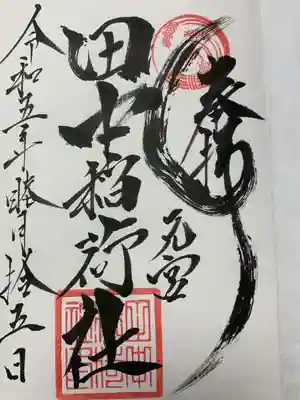 奉拝
元宮
稲荷社
令和五年睦月拾五日